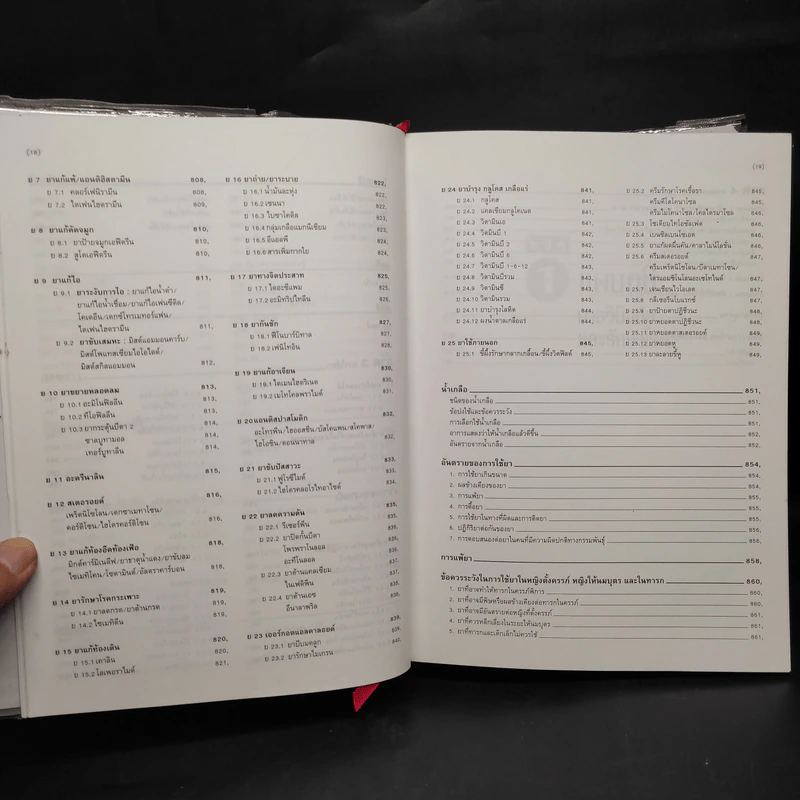 (18)
ย 7 ยาแก้แพ้/แอนติฮิสตามีน 808,
ย 7.1 คลอร์เฟนิรามีน 808,
ย 7.2 ไดเฟนไฮดรามีน 809,
ย 8 ยาแก้คัดจมูก 810,
ย 8.1 ยาป้ายจมูกเอฟีดรีน 810,
ย 8.2 สูโดเอฟีดรีน 810,
ย 9 ยาแก้ไอ 811,
ย 9.1 ยาระงับการไอ : ยาแก้ไอน้ำดำ/
ยาแก้ไอน้ำเชื่อม/ยาแก้ไอเฟนซีดีล/
โคเดอีน/เดกซ์โทรเมทอร์แฟน/
ไดเฟนไฮดรามีน 811,
ย 9.2 ยาขับเสมหะ : มิสต์แอมมอนคาร์บ/
มิสต์โพแทสเซียมไอโอไดด์/
มิสต์สกิลแอมมอน 812,
ย 10 ยาขยายหลอดลม 813,
ย 10.1 อะมิโนฟิลลีน 813,
ย 10.2 ทีโอฟิลลีน 814,
ย 10.3 ยากระตุ้นบีตา 2 814,
ซาลบูทามอล 814,
เทอร์บูทาลีน 814,
ย 11 อะดรีนาลิน 815,
ย 12 สเตอรอยด์
เพร็ดนิโซโลน/เดกซาเมทาโซน/
คอร์ติโซน/ไฮโดรคอร์ติโซน 816,
ย 13 ยาแก้ท้องอืดท้องเฟ้อ 818,
มิกต์คาร์มิเนตีฟ/ยาธาตุน้ำแดง/ยาขับลม
ไซเมทิโคน/โซดามินต์/อัลตราคาร์บอน
ย 14 ยารักษาโรคกระเพาะ 819,
ย 14.1 ยาลดกรด/ยาต้านกรด 819,
ย 14.2 ไซเมทิดีน
ย 15 ยาแก้ท้องเดิน 820,
ย 15.1 เคาลิน 820,
ย 15.2 โลเพอราไมด์ 821,
ย 16 ยาถ่าย/ยาระบาย 822,
ย 16.1 น้ำมันละหุ่ง 822,
ย 16.2 เซนนา 822,
ย 16.3 ไบซาโคดิล
ย 16.4 กลุ่มเกลือแมกนีเซียม
ย 16.5 อีแอลพี
ย 16.6 สารเพิ่มกากใย
ย 17 ยาทางจิตประสาท 825,
ย 17.1 ไดอะซีแพม 825,
ย 17.2 อะมิทริปไทลีน 825,
ย 18 ยากันชัก 827,
ย 18.1 ฟีโนบาร์บิทาล 827,
ย 18.2 เฟนิโทอิน
ย 19 ยาแก้อาเจียน 830,
ย 19.1 ไดเมนไฮดริเนต 830,
ย 19.2 เมโทโคลพราไมด์ 831,
ย 20 แอนติสปาสโมดิก 832,
อะโทรพีน/ไฮออสซีน/บัสโคแพน/สโคพาส/
ไฮโอซีน/ดอนนาทาล
ย 21 ยาขับปัสสาวะ
ย 21.1 ฟูโรซีไมด์
ย 21.2 ไฮโดรคลอโรไทอาไซด์
ย 22 ยาลดความดัน 835,
ย 22.1 รีเซอร์พีน
ย 22.2 ยาปิดกั้นบีตา
โพรพราโนลอล
อะทีโนลอล
ย 22.3 ยาต้านแคลเซียม
ไนเฟดิพีน
ย 22.4 ยาต้านเอซ
อีนาลาพริล
ย 23 เออร์กอตแอลคาลอยด์ 839,
ย 23.1 ยาบีบมดลูก
ย 23.2 ยารักษาไมเกรน 840,
(19)
ย 24 ยาบำรุง กลูโคส เกลือแร่ 841,
ย 24.1 กลูโคส 841,
ย 24.2 แคลเซียมกลูโคเนต 841,
ย 24.3 วิตามินเอ 841,
ย 24.4 วิตามินบี 1 842,
ย 24.5 วิตามินบี 2 842,
ย 24.6 วิตามินบี 6 842,
ย 24.7 วิตามินบี 1-6-12 843,
ย 24.8 วิตามินบีรวม 843,
ย 24.9 วิตามินซี 843,
ย 24.10 วิตามินรวม 843,
ย 24.11 ยาบำรุงโลหิต 844,
ย 24.12 ผงน้ำตาลเกลือแร่ 844,
ย 25 ยาใช้ภายนอก 845,
ย 25.1 ขี้ผึ้งรักษากลากเกลื้อน/ขี้ผึ้งวิตฟิลด์ 845,
ย 25.2 ครีมรักษาโรคเชื้อรา 845,
ครีมคีโตโคนาโซล
ครีมไมโคนาโซล/โคลไตรมาโซล
ย 25.3 โซเดียมไทโอซัลเฟต
ย 25.4 เบนซิลเบนโซเอต
ย 25.5 ยาแก้ผดผื่นคัน/คาลาไมน์โลชั่น
ย 25.6 ครีมสเตอรอยด์
ครีมเพร็ดนิโซโลน/บีตาเมทาโซน/
ไตรแอมซิโนโลนอะเซโทไนด์
ย 25.7 เจนเชียนไวโอเลต
ย 25.8 กลีเซอรีนโบแรกซ์
ย 25.9 ยาป้ายตาปฏิชีวนะ
ย 25.10 ยาหยอดตาปฏิชีวนะ
ย 25.11 ยาหยอดตาสเตอรอยด์ 849,
ย 25.12 ยาหยอดหู 849,
ย 25.13 ยาละลายขี้หู 849,
น้ำเกลือ 851,
ชนิดของน้ำเกลือ 851,
ข้อบ่งใช้และข้อควรระวัง 851,
การเลือกใช้น้ำเกลือ 851,
อาการแสดงว่าให้น้ำเกลือแล้วดีขึ้น 851,
อันตรายจากน้ำเกลือ 851,
อันตรายของการใช้ยา 854,
1. การใช้ยาเกินขนาด 854,
2. ผลข้างเคียงของยา 854,
3. การแพ้ยา 854,
4. การดื้อยา 854,
5. การใช้ยาในทางที่ผิดและการติดยา 854,
6. ปฏิกิริยาต่อกันของยา 854,
7. การตอบสนองต่อยาในคนที่มีความผิดปกติทางกรรมพันธุ์ 854,
การแพ้ยา 858,
ข้อควรระวังในการใช้ยาในหญิงตั้งครรภ์ หญิงให้นมบุตร และในทารก 860,
1. ยาที่อาจทำให้ทารกในครรภ์พิการ 861,
2. ยาที่อาจมีพิษหรือผลข้างเคียงต่อทารกในครรภ์ 861,
3. ยาที่อาจมีอันตรายต่อหญิงที่ตั้งครรภ์ 861,
4. ยาที่ควรหลีกเลี่ยงในระยะให้นมบุตร 861,
5. ยาที่ทารกและเด็กเล็กไม่ควรใช้ 861,